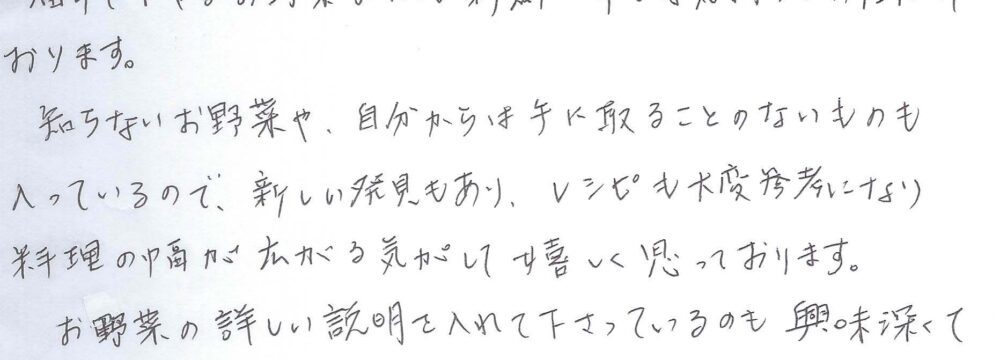 おります。
知らないお野菜や、自分からは手に取ることのないものも
入っているので、新しい発見もあり、レシピも大変参考になり
料理の幅が広がる気がして嬉しく思っております。
お野菜の詳しい説明を入れて下さっているのも興味深くて